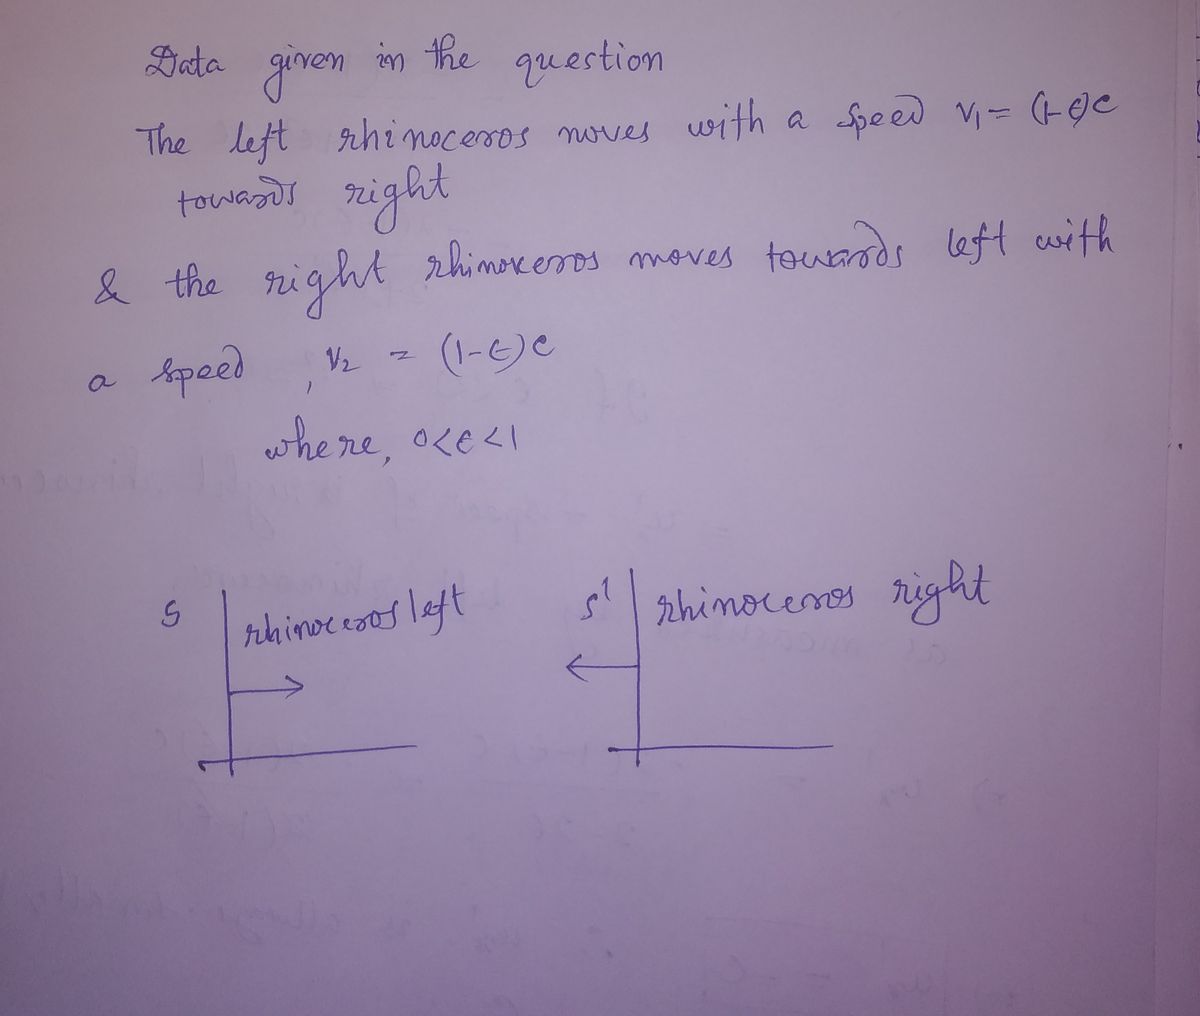 Data given in the question
The left rhinoceros moves with a speed v₁ = (1-ϵ)c
towards right
& the right rhinoceros moves towards left with
a speed, v₂ = (1-ϵ)c
where, 0<ϵ<1
S rhinoceros left S' rhinoceros right